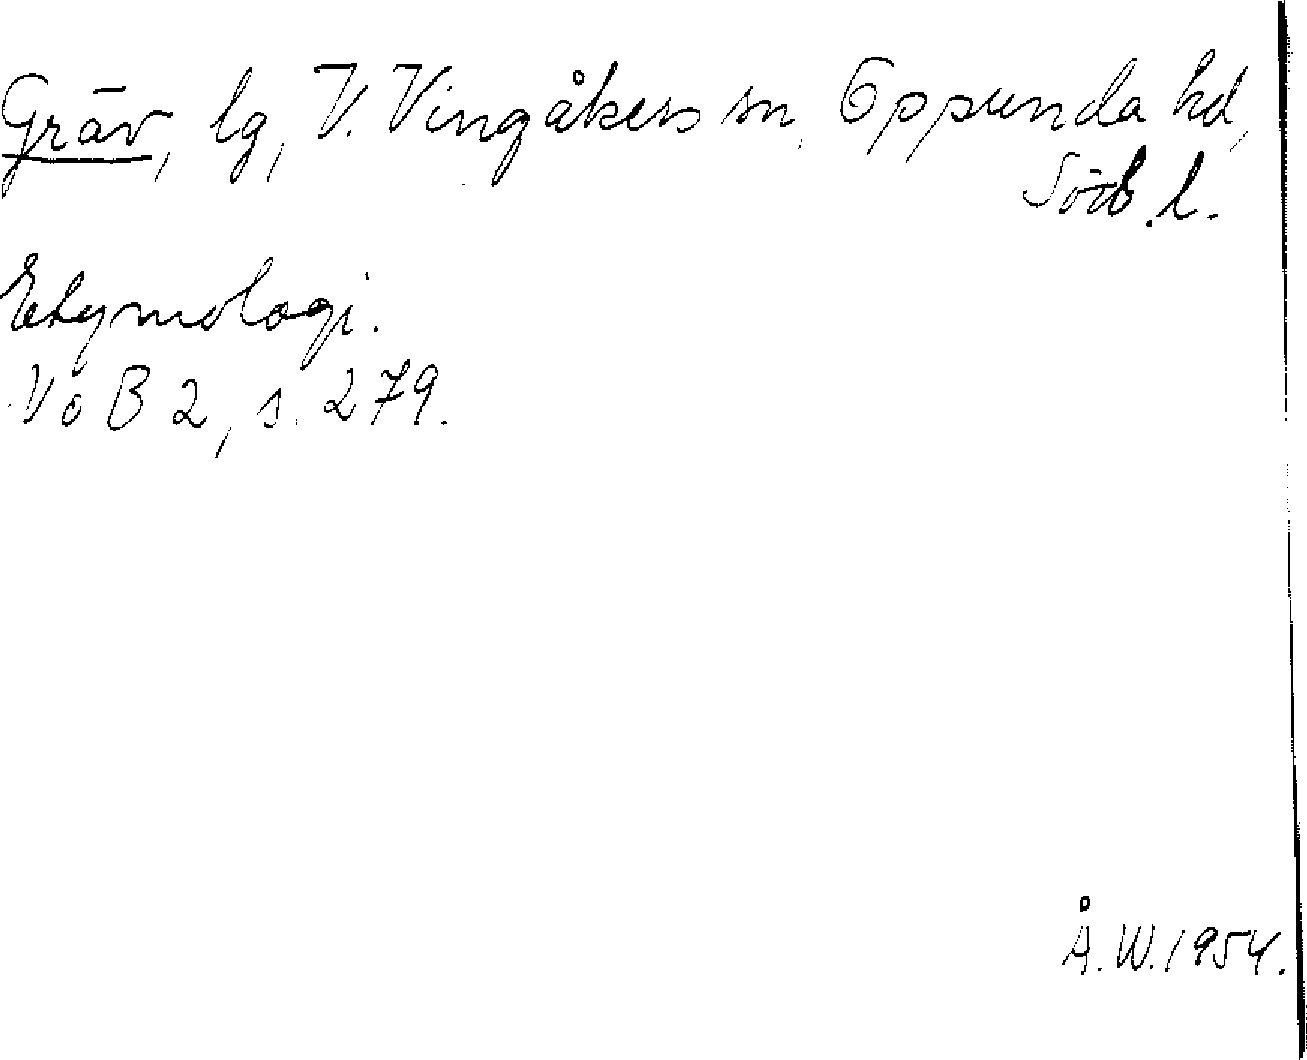 Gräv, lg, V. Vingåkers sn, Oppunda hd,
Söd. l.
Etymologi.
VoB 2, s. 279.
Å.W. 1954.